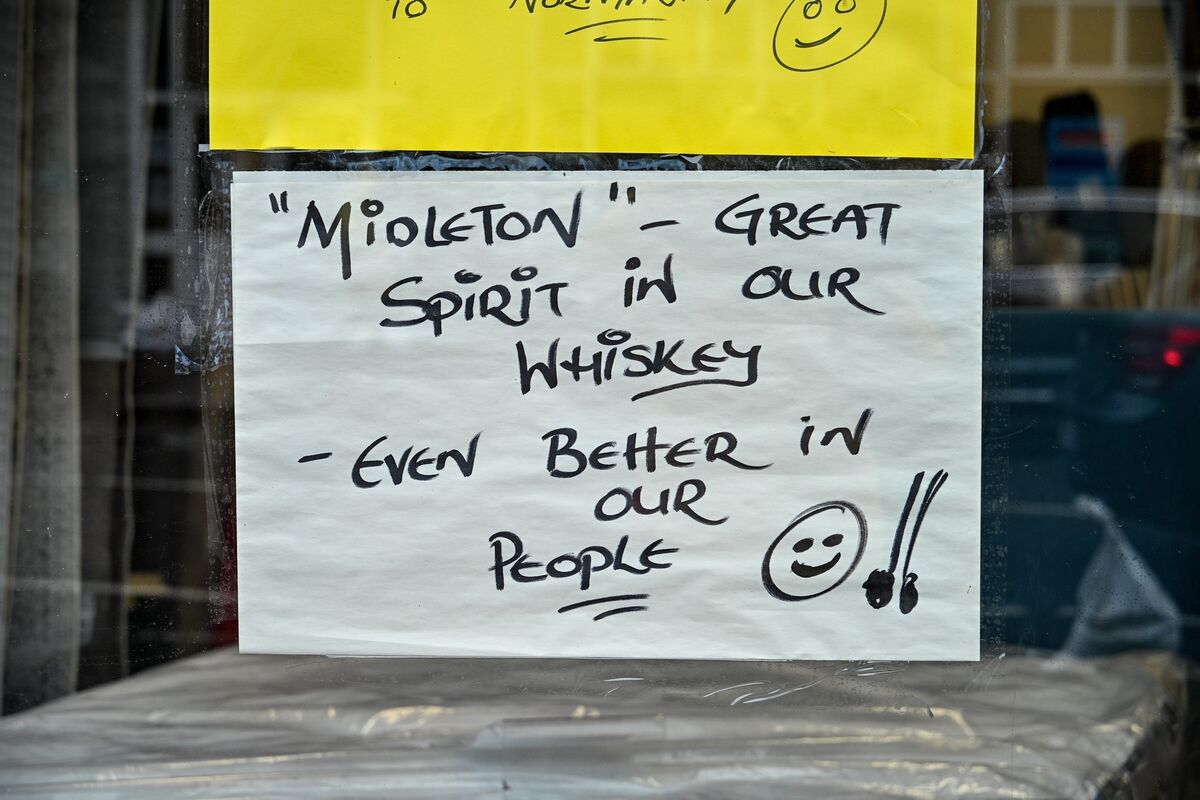 TO NORMALITY
"MIDLETON" - GREAT
SPIRIT IN OUR
WHISKEY
- EVEN BETTER IN
OUR
PEOPLE !!